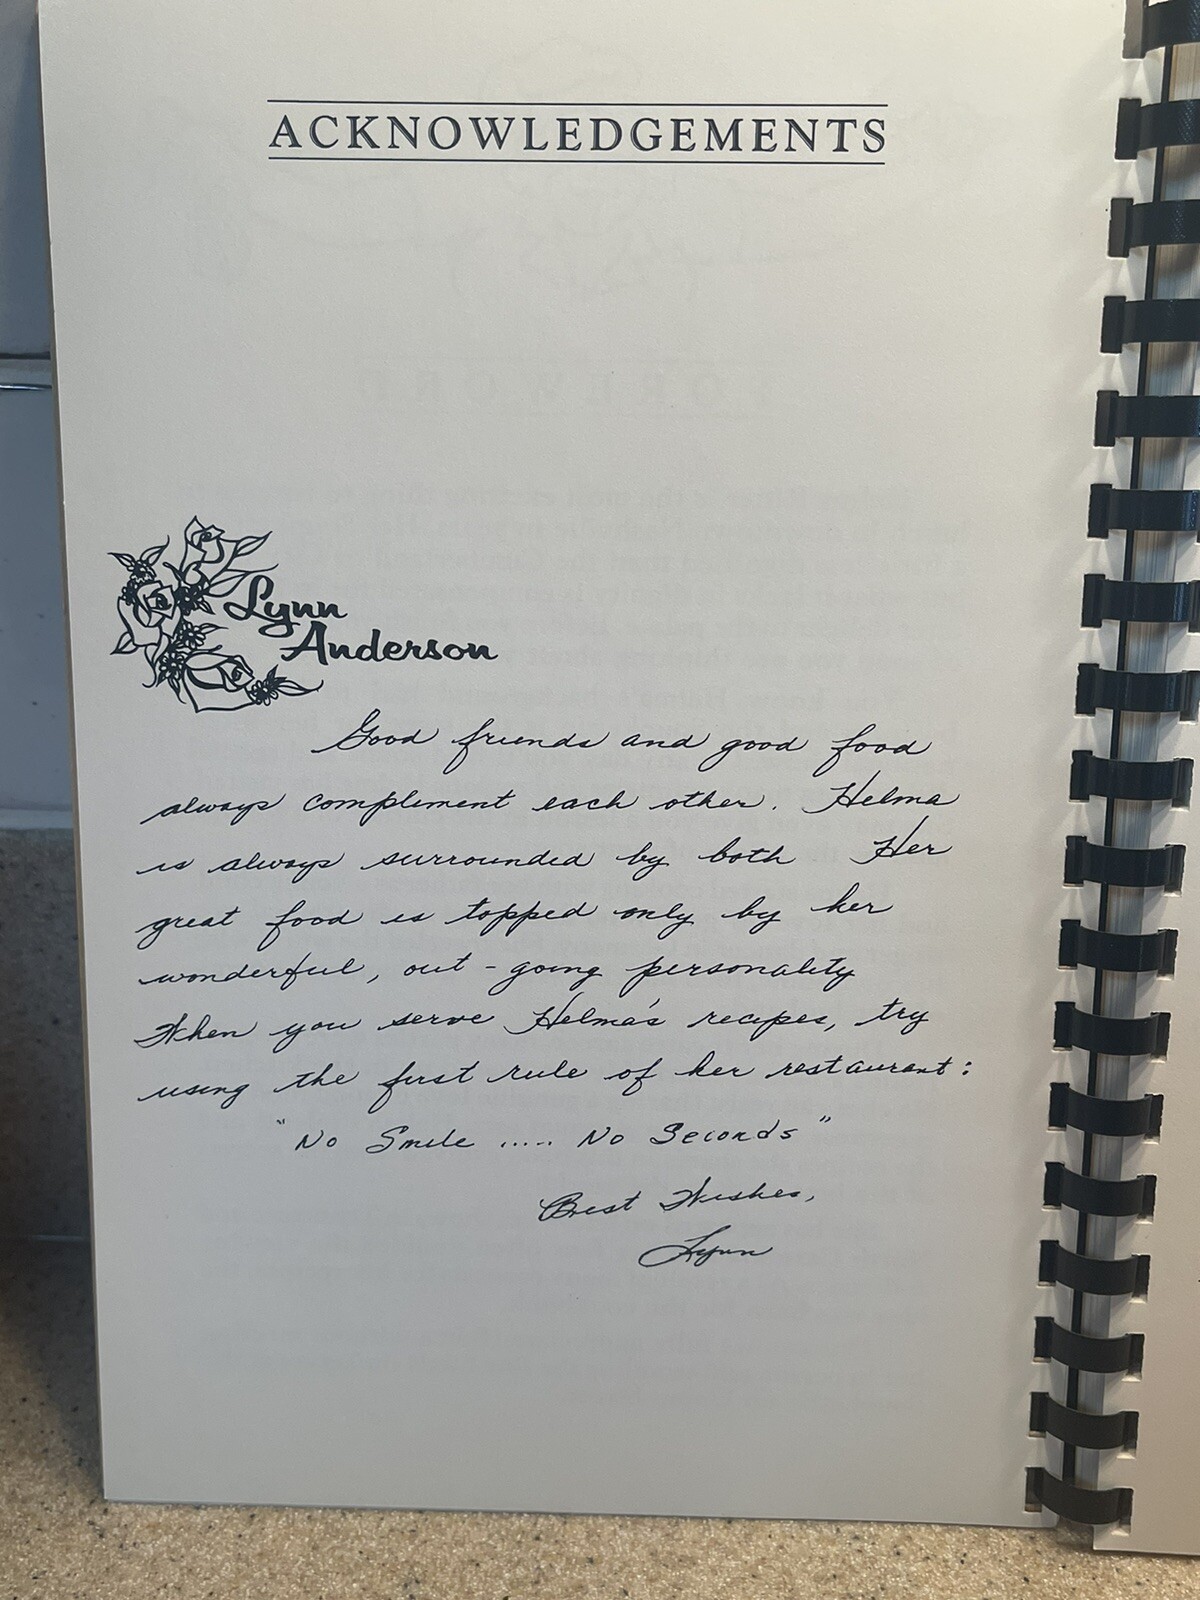 ACKNOWLEDGEMENTS
Lynn
Anderson
Good friends and good food
always complement each other. Helma
is always surrounded by both Her
great food is topped only by her
wonderful, out-going personality
When you serve Helma's recipes, try
using the first rule of her restaurant:
"No Smile ..... No Seconds"
Best Wishes,
Lynn